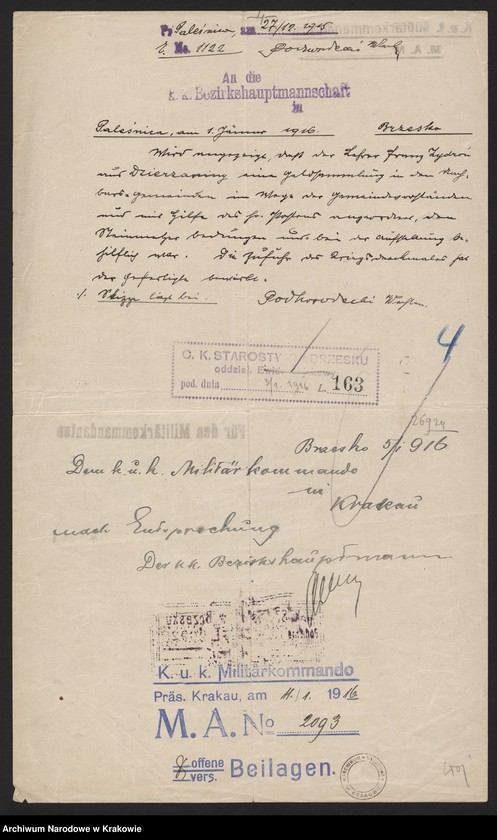 Pr. Paleśnica, am 27/12. 1915
E. No. 1122
An die
k. k. Bezirkshauptmannschaft
in
Paleśnica, am 1. Jänner 1916. Brzesko
Wird angezeigt, daß der Lehrer Franz
aus Dzierżaniny eine Geldsammlung in den Nach-
bars-gemeinden im Wege der Gemeindevorständen
und mit Hilfe des Postens angeordnet, den
Steinmetzer bedungen und bei der Aufstellung be-
hilflich war. Die Zufuhr des Kriegsdenkmales hat
der Gefertigte bewirkt.
1. Skizze liegt bei. Podhorodecki Wachtm.
4
C. K. STAROSTWO W BRZESKU
oddział
pod. data 3/1. 1916 L. 163
Für den Militärkommandanten
Brzesko 5/1 916
Dem k. u. k. Militärkommando
in
Krakau
nach Entsprechung
Der kk. Bezirkshauptmann
K. u. k. Militärkommando
Präs. Krakau, am 11./1. 1916
M. A. No 2093
offene
vers. Beilagen.
Archiwum Narodowe w Krakowie Archiwum Narodowe w Krakowie